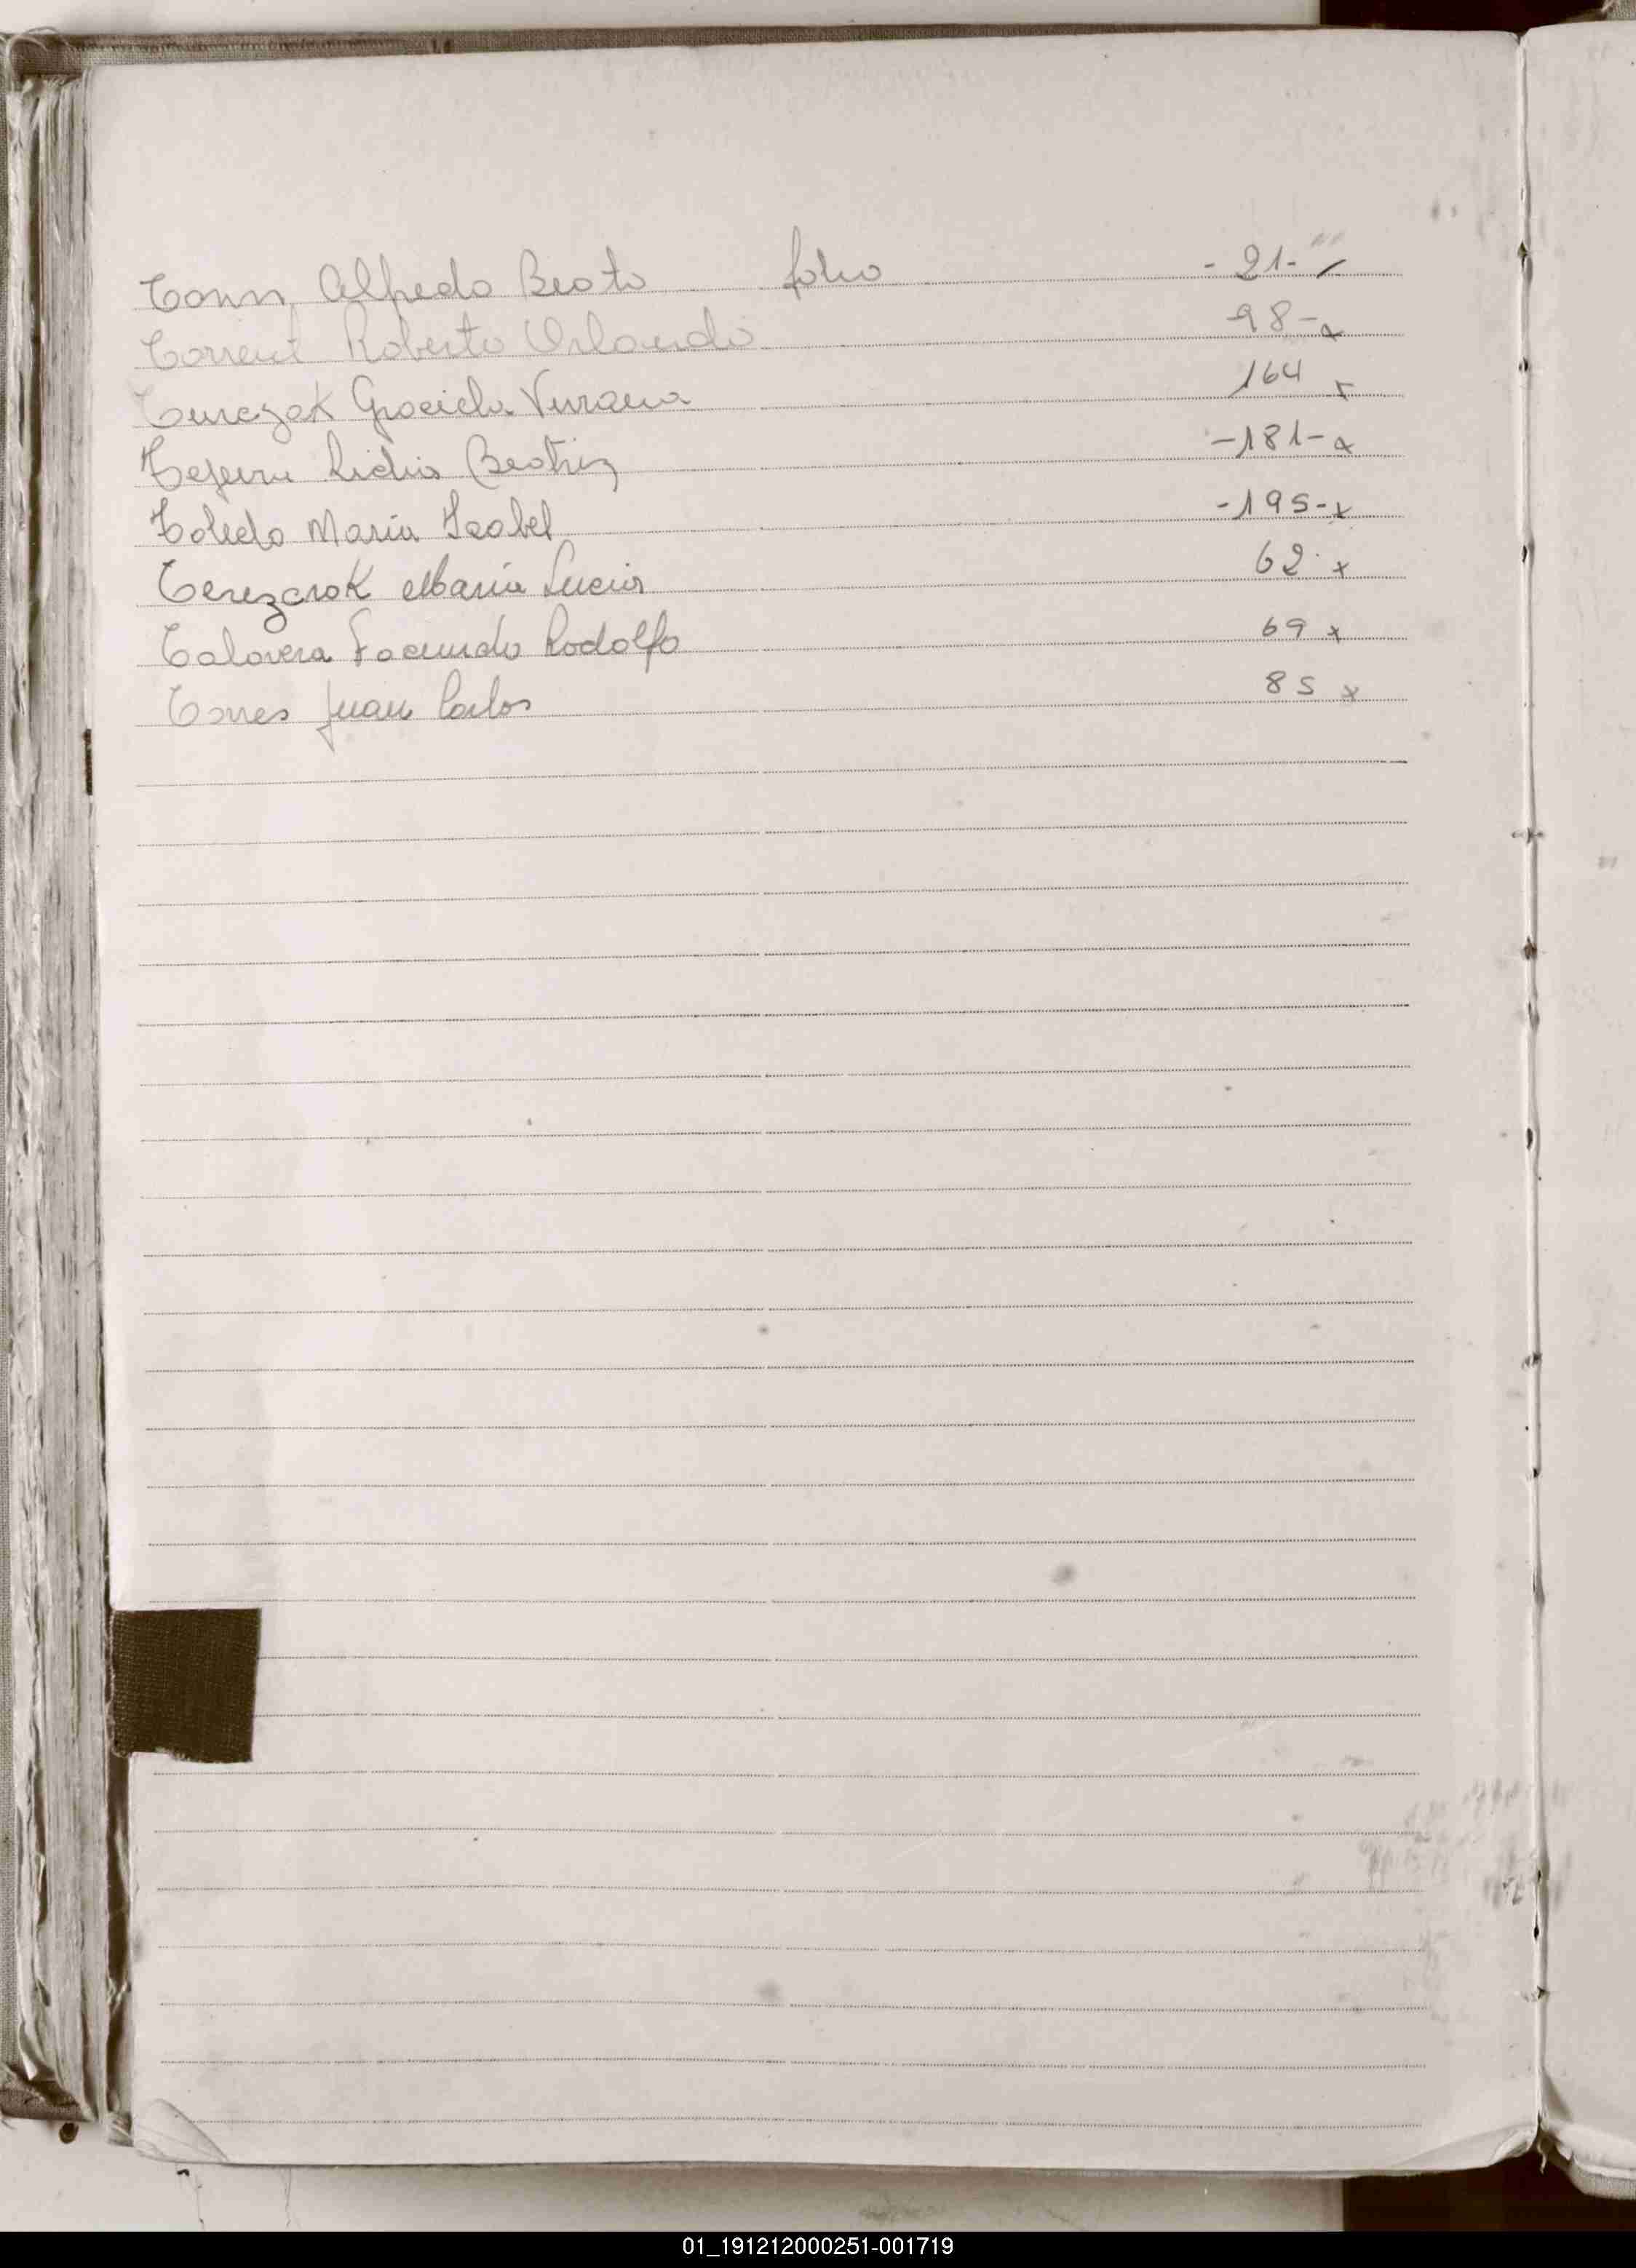 Alfredo Beato folio - 21 -
Torrent Roberto Orlando - 98 - x
Turczak Graciela Viviana 164 x
Lidia Beatriz - 181 - x
Toledo Maria Isabel - 195 - x
Terezczok Maria Lucia 62 x
Talavera Facundo Rodolfo 69 x
Torres Juan Carlos 85 x
01_191212000251-001719